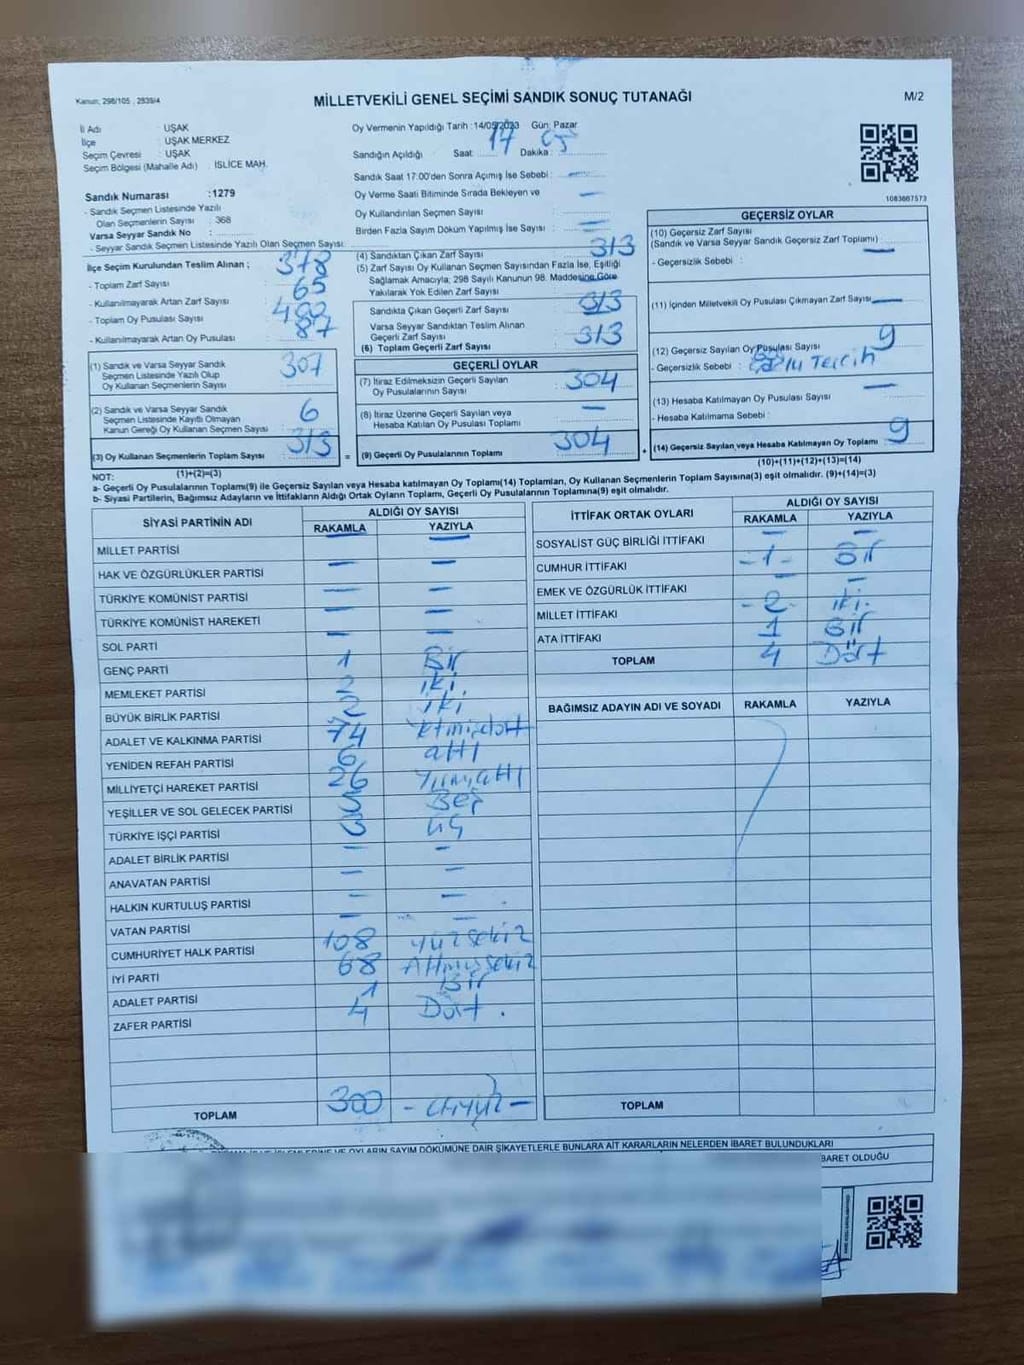 Kanun; 298/105 , 2839/4
MİLLETVEKİLİ GENEL SEÇİMİ SANDIK SONUÇ TUTANAĞI
M/2
İl Adı : UŞAK
İlçe : UŞAK MERKEZ
Seçim Çevresi : UŞAK
Seçim Bölgesi (Mahalle Adı) : ISLICE MAH.
Sandık Numarası : 1279
- Sandık Seçmen Listesinde Yazılı
Olan Seçmenlerin Sayısı : 368
Varsa Seyyar Sandık No :
- Seyyar Sandık Seçmen Listesinde Yazılı Olan Seçmen Sayısı:
Oy Vermenin Yapıldığı Tarih : 14/05/2023 Gün: Pazar
Sandığın Açıldığı Saat: 17 Dakika: 05
Sandık Saat 17:00'den Sonra Açımış İse Sebebi : —
Oy Verme Saati Bitiminde Sırada Bekleyen ve
Oy Kullandırılan Seçmen Sayısı —
Birden Fazla Sayım Döküm Yapılmış İse Sayısı : —
1083667573
İlçe Seçim Kurulundan Teslim Alınan ;
- Toplam Zarf Sayısı : 378
- Kullanılmayarak Artan Zarf Sayısı : 65
- Toplam Oy Pusulası Sayısı
- Kullanılmayarak Artan Oy Pusulası : 87
(1) Sandık ve Varsa Seyyar Sandık
Seçmen Listesinde Yazılı Olup
Oy Kullanan Seçmenlerin Sayısı : 307
(2) Sandık ve Varsa Seyyar Sandık
Seçmen Listesinde Kayıtlı Olmayan
Kanun Gereği Oy Kullanan Seçmen Sayısı : 6
(3) Oy Kullanan Seçmenlerin Toplam Sayısı : 313
(4) Sandıktan Çıkan Zarf Sayısı : 313
(5) Zarf Sayısı Oy Kullanan Seçmen Sayısından Fazla İse, Eşitliği
Sağlamak Amacıyla; 298 Sayılı Kanunun 98. Maddesine Göre
Yakılarak Yok Edilen Zarf Sayısı —
Sandıkta Çıkan Geçerli Zarf Sayısı : 313
Varsa Seyyar Sandıktan Teslim Alınan
Geçerli Zarf Sayısı
(6) Toplam Geçerli Zarf Sayısı : 313
GEÇERLİ OYLAR
(7) İtiraz Edilmeksizin Geçerli Sayılan
Oy Pusulalarının Sayısı : 304
(8) İtiraz Üzerine Geçerli Sayılan veya
Hesaba Katılan Oy Pusulası Toplamı : —
(9) Geçerli Oy Pusulalarının Toplamı : 304
GEÇERSİZ OYLAR
(10) Geçersiz Zarf Sayısı
(Sandık ve Varsa Seyyar Sandık Geçersiz Zarf Toplamı) : —
- Geçersizlik Sebebi :
(11) İçinden Milletvekili Oy Pusulası Çıkmayan Zarf Sayısı: —
(12) Geçersiz Sayılan Oy Pusulası Sayısı : 9
- Geçersizlik Sebebi : Çoklu Tercih
(13) Hesaba Katılmayan Oy Pusulası Sayısı : —
- Hesaba Katılmama Sebebi :
(14) Geçersiz Sayılan veya Hesaba Katılmayan Oy Toplamı : 9
NOT: (1)+(2)=(3)
(10)+(11)+(12)+(13)=(14)
a- Geçerli Oy Pusulalarının Toplamı(9) ile Geçersiz Sayılan veya Hesaba katılmayan Oy Toplamı(14) Toplamları, Oy Kullanan Seçmenlerin Toplam Sayısına(3) eşit olmalıdır. (9)+(14)=(3)
b- Siyasi Partilerin, Bağımsız Adayların ve İttifakların Aldığı Ortak Oyların Toplamı, Geçerli Oy Pusulalarının Toplamına(9) eşit olmalıdır.
SİYASİ PARTİNİN ADI
ALDIĞI OY SAYISI
RAKAMLA YAZIYLA
MİLLET PARTİSİ — —
HAK VE ÖZGÜRLÜKLER PARTİSİ — —
TÜRKİYE KOMÜNİST PARTİSİ — —
TÜRKİYE KOMÜNİST HAREKETİ — —
SOL PARTİ — —
GENÇ PARTİ 1 Bir
MEMLEKET PARTİSİ 2 iki
BÜYÜK BİRLİK PARTİSİ 2 iki
ADALET VE KALKINMA PARTİSİ 74 Yetmişdört
YENİDEN REFAH PARTİSİ 6 altı
MİLLİYETÇİ HAREKET PARTİSİ 26 Yirmialtı
YEŞİLLER VE SOL GELECEK PARTİSİ 5 Beş
TÜRKİYE İŞÇİ PARTİSİ 3 üç
ADALET BİRLİK PARTİSİ — —
ANAVATAN PARTİSİ — —
HALKIN KURTULUŞ PARTİSİ — —
VATAN PARTİSİ — —
CUMHURİYET HALK PARTİSİ 108 yüzsekiz
İYİ PARTİ 68 Altmışsekiz
ADALET PARTİSİ 1 Bir
ZAFER PARTİSİ 4 Dört.
TOPLAM 300 - üçyüz -
İTTİFAK ORTAK OYLARI
ALDIĞI OY SAYISI
RAKAMLA YAZIYLA
SOSYALİST GÜÇ BİRLİĞİ İTTİFAKI — —
CUMHUR İTTİFAKI -1- Bir
EMEK VE ÖZGÜRLÜK İTTİFAKI — —
MİLLET İTTİFAKI -2- iki.
ATA İTTİFAKI 1 Bir
TOPLAM 4 Dört
BAĞIMSIZ ADAYIN ADI VE SOYADI RAKAMLA YAZIYLA
TOPLAM
OYLARIN SAYIM DÖKÜMÜNE DAİR ŞİKAYETLERLE BUNLARA AİT KARARLARIN NELERDEN İBARET BULUNDUKLARI
BARET OLDUĞU